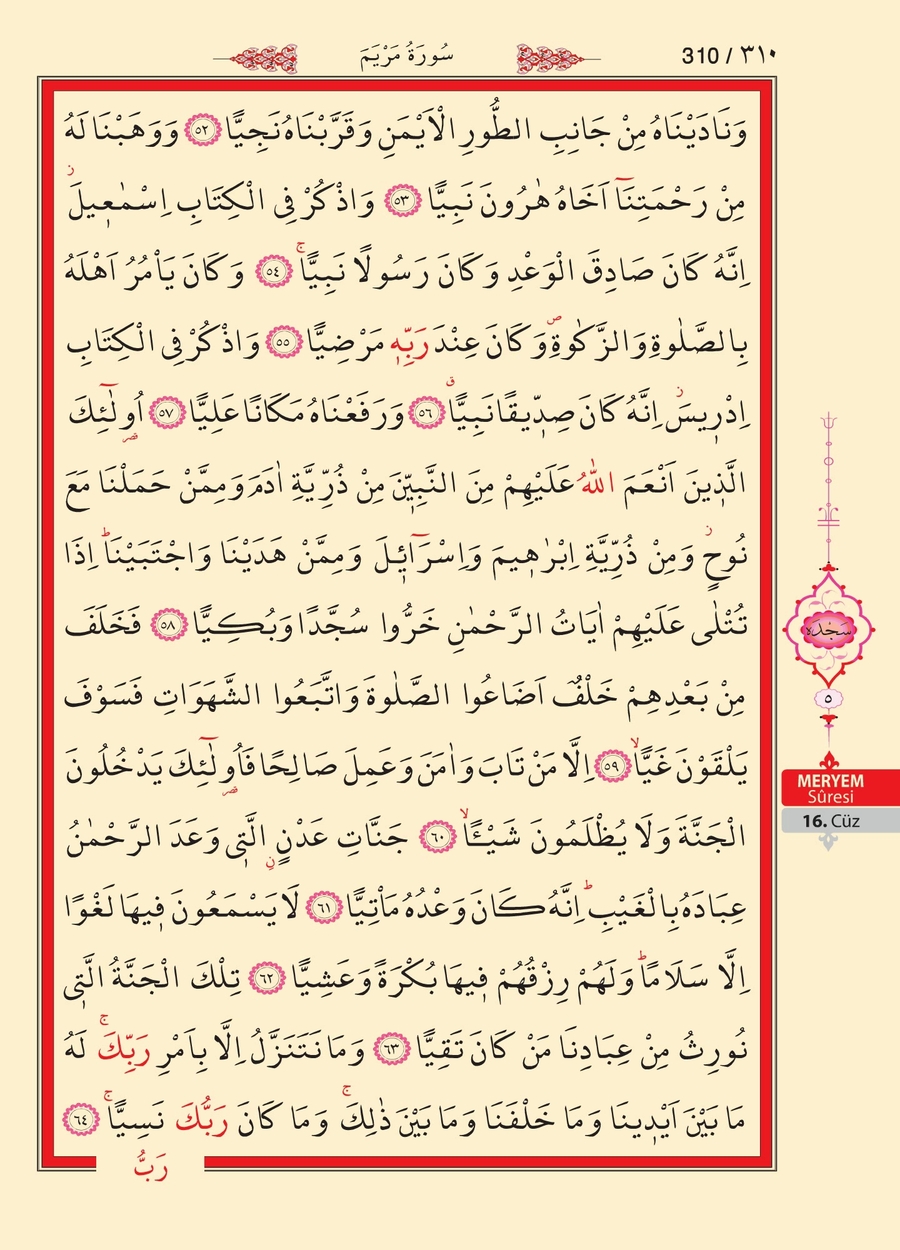 سُورَةُ مَرْيَمَ
310 / ٣١٠
وَنَادَيْنَاهُ مِنْ جَانِبِ الطُّورِ الْاَيْمَنِ وَقَرَّبْنَاهُ نَجِيًّا ٥٢ وَوَهَبْنَا لَهُ
مِنْ رَحْمَتِنَٓا اَخَاهُ هٰرُونَ نَبِيًّا ٥٣ وَاذْكُرْ فِي الْكِتَابِ اِسْمٰع۪يلَۘ
اِنَّهُ كَانَ صَادِقَ الْوَعْدِ وَكَانَ رَسُولًا نَبِيًّاۚ ٥٤ وَكَانَ يَأْمُرُ اَهْلَهُ
بِالصَّلٰوةِ وَالزَّكٰوةِۖ وَكَانَ عِنْدَ رَبِّه۪ مَرْضِيًّا ٥٥ وَاذْكُرْ فِي الْكِتَابِ
اِدْر۪يسَۘ اِنَّهُ كَانَ صِدّ۪يقًا نَبِيًّاۗ ٥٦ وَرَفَعْنَاهُ مَكَانًا عَلِيًّا ٥٧ اُو۬لٰٓئِكَ
الَّذ۪ينَ اَنْعَمَ اللّٰهُ عَلَيْهِمْ مِنَ النَّبِيّ۪نَ مِنْ ذُرِّيَّةِ اٰدَمَ وَمِمَّنْ حَمَلْنَا مَعَ
نُوحٍۘ وَمِنْ ذُرِّيَّةِ اِبْرٰه۪يمَ وَاِسْرَٓائ۪لَ وَمِمَّنْ هَدَيْنَا وَاجْتَبَيْنَاۜ اِذَا
تُتْلٰى عَلَيْهِمْ اٰيَاتُ الرَّحْمٰنِ خَرُّوا سُجَّدًا وَبُكِيًّا ٥٨ فَخَلَفَ
مِنْ بَعْدِهِمْ خَلْفٌ اَضَاعُوا الصَّلٰوةَ وَاتَّبَعُوا الشَّهَوَاتِ فَسَوْفَ
يَلْقَوْنَ غَيًّاۙ ٥٩ اِلَّا مَنْ تَابَ وَاٰمَنَ وَعَمِلَ صَالِحًا فَاُو۬لٰٓئِكَ يَدْخُلُونَ
الْجَنَّةَ وَلَا يُظْلَمُونَ شَيْـًٔاۙ ٦٠ جَنَّاتِ عَدْنٍۨ الَّت۪ي وَعَدَ الرَّحْمٰنُ
عِبَادَهُ بِالْغَيْبِۜ اِنَّهُ كَانَ وَعْدُهُ مَأْتِيًّا ٦١ لَا يَسْمَعُونَ ف۪يهَا لَغْوًا
اِلَّا سَلَامًاۜ وَلَهُمْ رِزْقُهُمْ ف۪يهَا بُكْرَةً وَعَشِيًّا ٦٢ تِلْكَ الْجَنَّةُ الَّت۪ي
نُورِثُ مِنْ عِبَادِنَا مَنْ كَانَ تَقِيًّا ٦٣ وَمَا نَتَنَزَّلُ اِلَّا بِاَمْرِ رَبِّكَۚ لَهُ
مَا بَيْنَ اَيْد۪ينَا وَمَا خَلْفَنَا وَمَا بَيْنَ ذٰلِكَۚ وَمَا كَانَ رَبُّكَ نَسِيًّاۚ ٦٤
رَبُّ
سَجْدَه
٥
MERYEM
Sûresi
16. Cüz